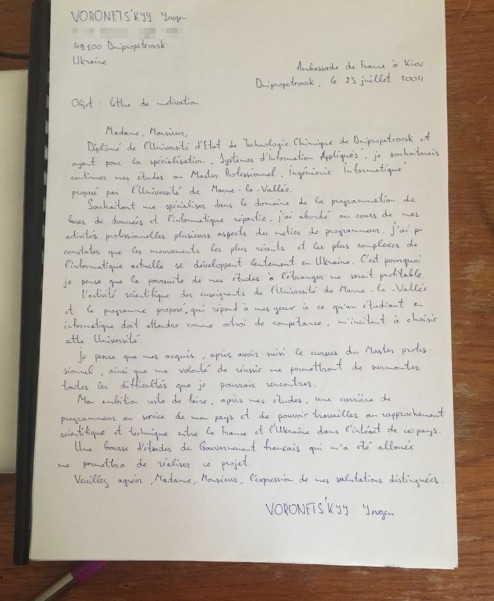 VORONETS'KYY Yevgen
49100 Dnipropetrovsk
Ukraine
Ambassade de France à Kiev
Dnipropetrovsk, le 23 juillet 2004
Objet : lettre de motivation
Madame, Monsieur,
Diplômé de l'Université d'Etat de Technologie Chimique de Dnipropetrovsk et
ayant pour la spécialisation "Systèmes d'Information Appliqués", je souhaiterais
continuer mes études au Master Professionnel "Ingénierie Informatique"
proposé par l'Université de Marne-la-Vallée.
Souhaitant me spécialiser dans le domaine de la programmation de
bases de données et l'informatique répartie, j'ai abordé au cours de mes
activités professionnelles plusieurs aspects du métier de programmeur. J'ai pu
constater que les mouvements les plus récents et les plus complexes de
l'informatique actuelle se développent lentement en Ukraine. C'est pourquoi
je pense que la poursuite de mes études à l'étranger me serait profitable.
L'activité scientifique des enseignants de l'Université de Marne-la-Vallée
et le programme proposé, qui répond à mes yeux à ce qu'un étudiant en
informatique doit attendre comme octroi de compétance, m'incitent à choisir
cette Université.
Je pense que mes acquis, après avoir suivi le cursus du Master profes-
sionnel, ainsi que ma volonté de réussir me permettront de surmonter
toutes les difficultés que je pourrais rencontrer.
Mon ambition reste de faire, après mes études, une carrière de
programmeur au service de mon pays et de pouvoir travailler au rapprochement
scientifique et technique entre la France et l'Ukraine dans l'intérêt de ces pays.
Une Bourse d'études du Gouvernement français qui m'a été allouée
me permettra de réaliser ce projet.
Veuillez agréer, Madame, Monsieur, l'expression de mes salutations distinguées.
VORONETS'KYY Yevgen